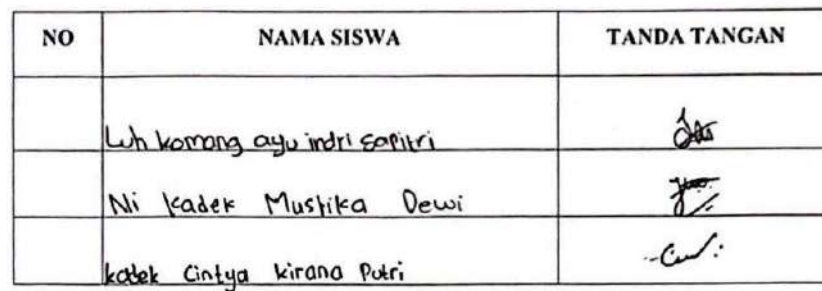 NO NAMA SISWA TANDA TANGAN
Luh komang ayu indri sapitri
Ni Kadek Mustika Dewi
kadek Cintya kirana Putri